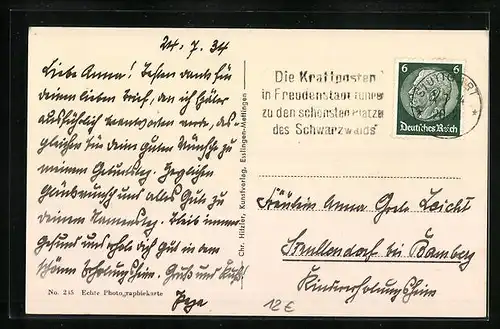 24. 7. 34
Liebe Anna! Besten Dank für
deinen lieben Brief, den ich später
ausführlich beantworten werde, des-
gleichen für deine guten Wünsche zu
meinem Geburtstag. Herzlichen
Glückwunsch und alles Gute zu
deinem Namenstag. Bleib immer
gesund und erhol dich gut in dem
schönen Erholungsheim. Gruß und Kuß!
No. 245 Echte Photographiekarte
Chr. Hilzler, Kunstverlag, Esslingen-Mettingen
Die Kraftposten
in Freudenstadt führen
zu den schönsten Plätzen
des Schwarzwalds
STUTTGART
6 6
Deutsches Reich
Fräulein Anna Greta Leicht
Strullendorf bei Bamberg
Kindererholungsheim
12 €